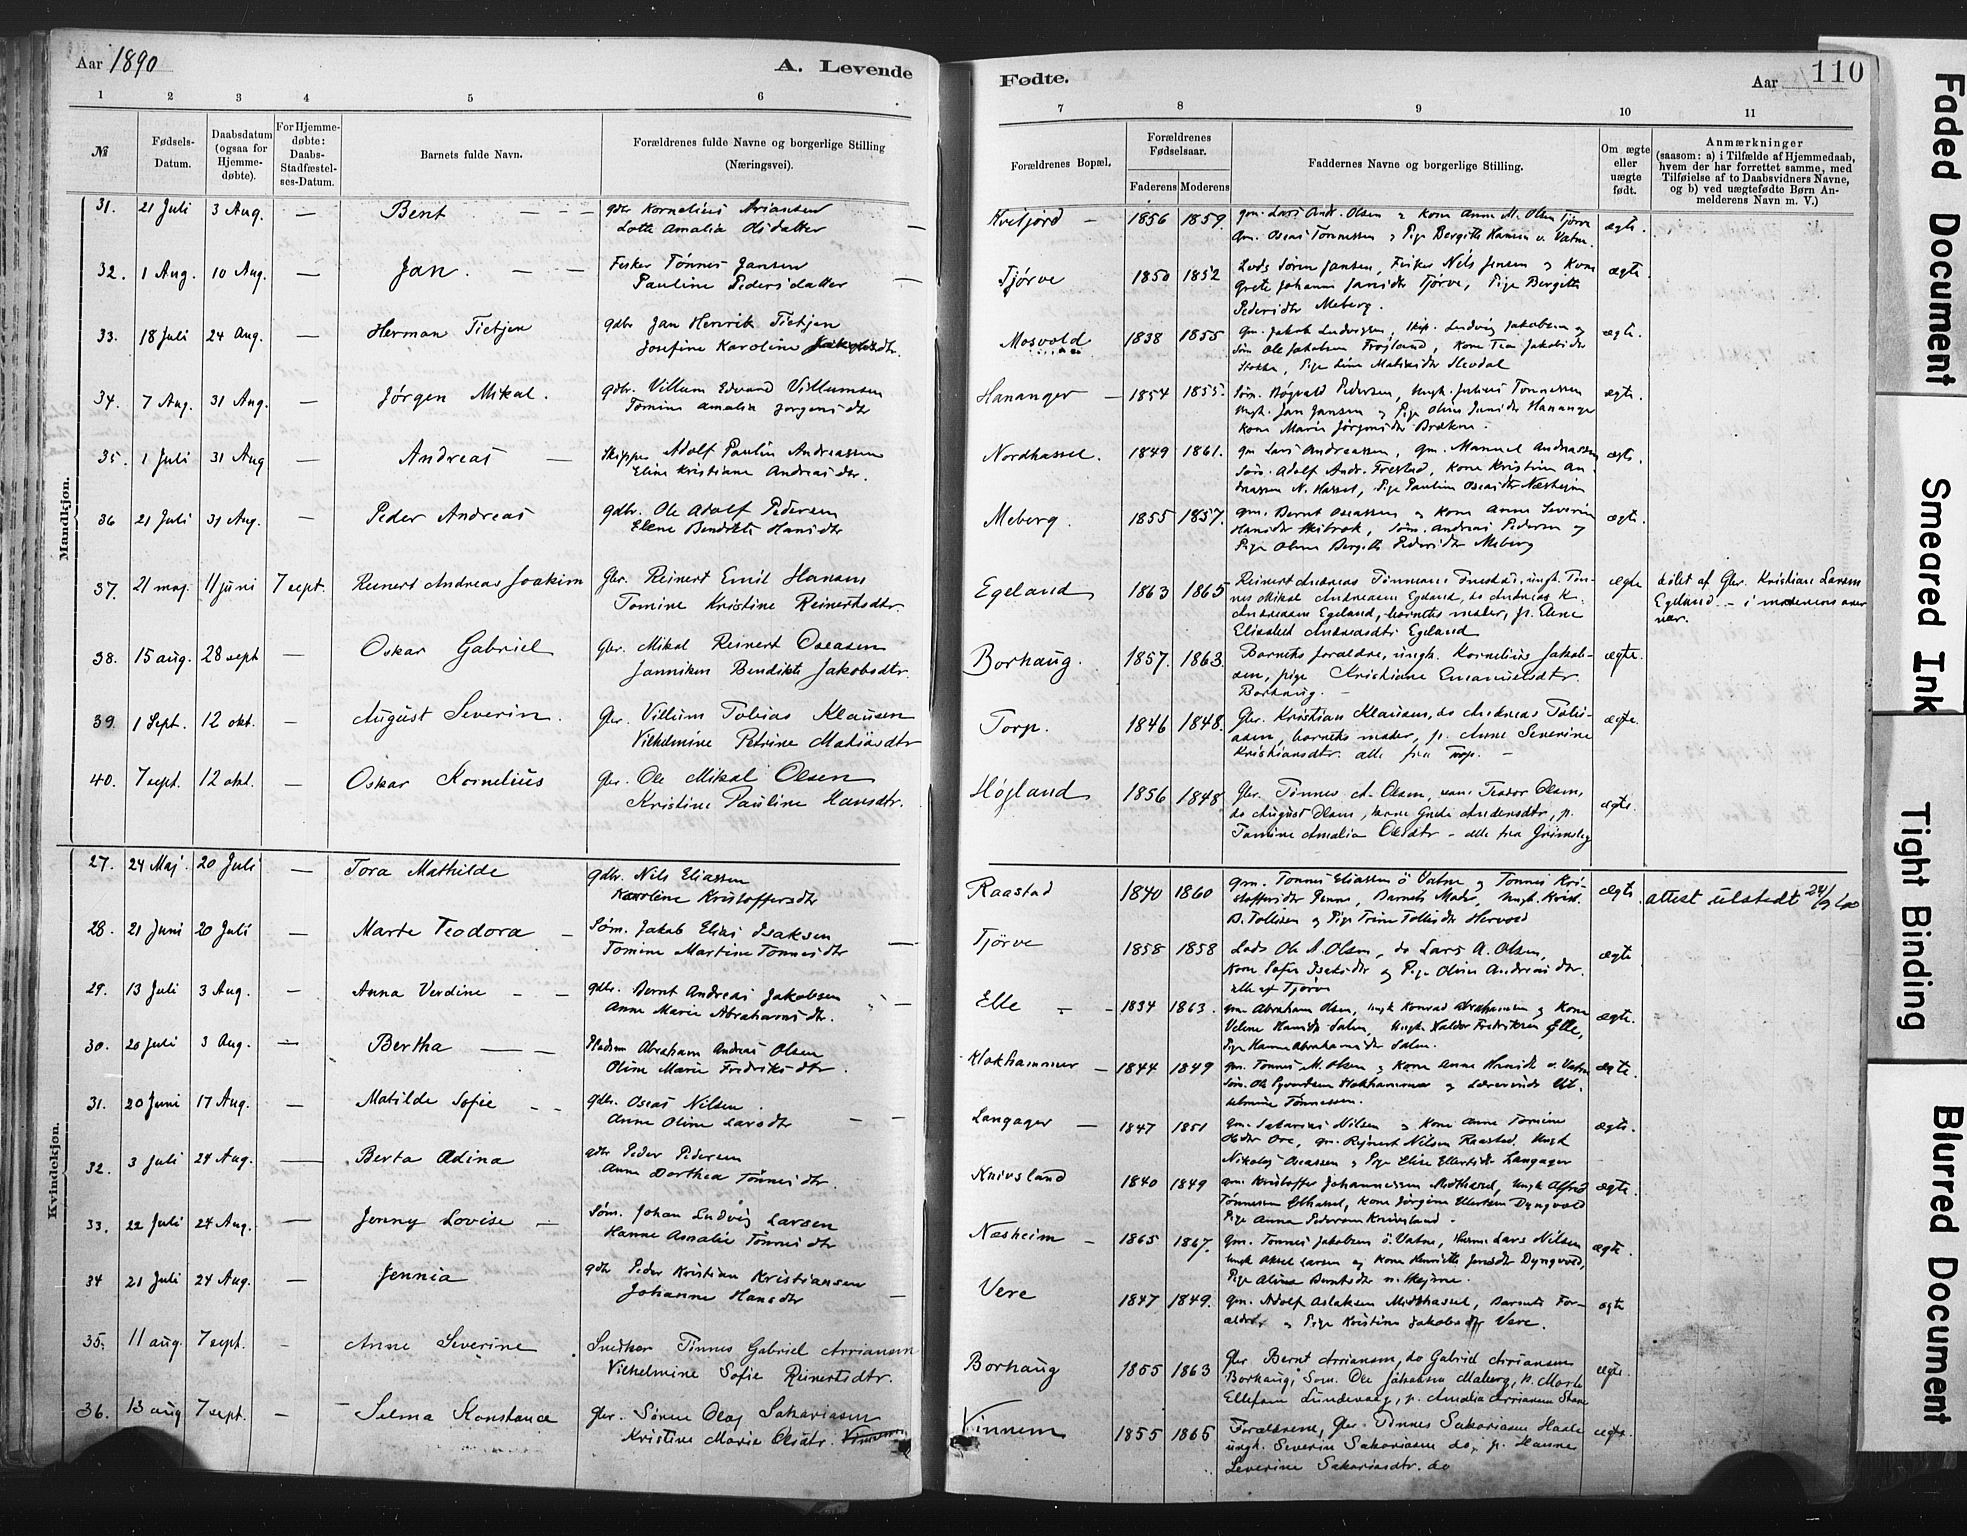 Aar 1890
A. Levende
1 2 3 4 5 6
№
Fødsels-Datum.
Daabsdatum (ogsaa for Hjemme-døbte).
For Hjemme-døbte: Daabs-Stadfæstel-ses-Datum.
Barnets fulde Navn.
Forældrenes fulde Navne og borgerlige Stilling
(Næringsvei).
Mandkjøn.
31. 21 Juli 3 Aug. — Bent — — — gdbr Kornelius Ariansen
Lotte Amalia Olsdatter —
32. 1 Aug. 10 Aug. — Jan. — — Fisker Tønnes Jansen
Pauline Pedersdatter —
33. 18 Juli 24 Aug. — Herman Tietjen gdbr Jan Henrik Tietjen
Josefine Karoline Jakobsdtr.
34. 7 Aug. 31 Aug. — Jørgen Mikal. gdbr. Villum Edvard Villumsen
Tomine Amalia Jørgensdtr
35. 1 Juli 31 Aug — Andreas — Skipper Adolf Paulin Andreassen
Eline Kristiane Andreasdtr.
36 21 Juli 31 Aug. — Peder Andreas gdbr. Ole Adolf Pedersen
Elene Bendikte Hansdtr
37. 21 maj. 11 juni 7 sept. Reinert Andreas Joakim Gbr. Reinert Emil Hansen
Tomine Kristine Reinertsdtr.
38. 15 aug. 28 sept — Oskar Gabriel gbr. Mikal Reinert Oseasen
Janniken Bendikte Jakobsdtr.
39. 1 Sept. 12 okt. — August Severin. Gbr. Villum Tobias Klausen
Vilhelmine Petrine Matiasdtr
40. 7 sept. 12 okt. — Oskar Kornelius gbr. Ole Mikal Olsen
Kristine Pauline Hansdtr.
Kvindekjøn.
27. 24 Maj. 20 Juli — Tora Mathilde gdbr. Nils Eliassen
Karolene Kristoffersdtr
28. 21 Juni 20 Juli — Marte Teodora — Søm. Jakob Elias Isaksen
Tomine Martine Tønnesdtr —
29. 13 Juli 3 Aug. — Anna Verdine — — gdbr. Bernt Andreas Jakobsen
Anne Marie Abrahamsdtr.
30. 20 Juli 3 Aug. — Bertha — — Pladsm Abraham Andreas Olsen
Oline Marie Fredriksdtr.
31. 20 Juni 17 Aug. — Matilde Sofie — — gdbr. Oseas Nilsen
Anne Oline Larsdtr —
32. 3 Juli 24 Aug. — Berta Adina gdbr Peder Pedersen
Anne Dorthea Tønnesdtr.
33. 22 Juli 24 Aug. — Jenny Lovise — Søm. Johan Ludvig Larsen
Hanne Amalie Tønnesdtr
34 21 Juli 24 Aug. — Jennia gdbr Peder Kristian Kristiansen
Johanne Hansdtr —
35. 11 aug. 7 sept. — Anne Severine Snedker Tønnes Gabriel Arriansen
Vilhelmine Sofie Reinertsdtr.
36. 13 aug 7 sept. — Selma Konstance gbr. Søren Olaj Sakariasen
Kristine Marie Olsdtr.
Fødte.
Aar
110
7 8 9 10 11
Forældrenes Bopæl.
Forældrenes Fødselsaar.
Faderens Moderens
Faddernes Navne og borgerlige Stilling.
Om ægte eller uægte født.
Anmærkninger
(saasom: a) i Tilfælde af Hjemmedaab,
hvem der har forrettet samme, med
Tilføielse af to Daabsvidners Navne,
og b) ved uægtefødte Børn An-
melderens Navn m. V.)
Kvifjord — 1856 1859. gm. Lars Andr. Olsen & Kone Anne M. Olsen Tjørve ægte.
gm. Oseas Tønnessen & Pige Bergitte Hansen ø. Vatne.
Tjørve 1850 1852 Lods Søren Jansen, Fisker Nils Jensen og Kone ægte.
Grete Johanne Jansdtr Tjørve, Pige Bergitte
Pedersdtr Meberg.
Mosvold 1838 1855 gm. Jakob Ludvigsen, Skip. Ludvig Jakobsen og ægte.
Søn Ole Jakobsen Frøjland, Kone Tea Jakobsdtr
Stokke, Pige Line Matiasdtr
Hananger — 1854 1855. Søm. Bøgvald Pedersen, Ungk. Julius Tønnessen ægte.
Ungk. Jan Jansen & Pige Oline Jansdtr Hananger
Kone Marie Jørgensdtr Brekne.
Nordhassel. 1849 1861. gm Lars Andreassen, gm. Manuel Andreassen ægte.
Søm. Adolf Andr. Frestad, Kone Kristine An-
dreassen N. Hassel, Pige Pauline Oseasdtr Næsheim
Meberg. 1855 1857. gm. Bernt Oseassen & Kone Anne Severine ægte.
Hansdtr Skibrok, Søm. Andreas Pedersen og
Pige Oline Bergitte Pedersdtr Meberg
Egeland 1863 1865 Reinert Andreas Tønnesen, ungk. Tøn- ægte
nes Mikal Andreasen Egeland, do Andreas K.
Andreasen Egeland, barnets moder, p. Elene
Elisabet Andreasdtr Egeland
døbt af Gbr. Kristian Larsen
Egeland — i moderens nær
vær.
Borhaug. 1857. 1863. Barnets forældre, ungk. Kornelius Jakob- ægte.
sen, pige Kristiane Emanuelsdtr
Borhaug. —
Torp. 1846 1848. Gbr. Kristian Klausen, do Andreas Tobi- ægte.
asen, barnets moder, p. Anne Severine
Kristiansdtr. alle fra Torp. —
Højland 1856 1848 Gbr. Tønnes A. Olsen, Teodor Olsen, ægte.
do August Olsen, kone Grete Andersdtr, p.
Tomine Amalia Olsdtr — alle fra Grimsby
Raastad 1840 1860 gm. Tønnes Eliassen ø Vatne & Tønnes Kri- ægte.
stoffersdtr Penne, Barnets Moder, Ungk. Krist.
B. Tollisen & Pige Trine Tollisdtr Hervold
attest utstedt 24/9 40
Tjørve 1858 1858 Lods Ole A. Olsen, do Lars A. Olsen, ægte
Kone Sofie Isaksdtr & Pige Oline Andreasdtr.
alle af Tjørve
Elle — — 1834 1863. gm Abraham Olsen, Ungk Konrad Abrahamsen & Kone ægte.
Velene Hansdtr Salen, Ungk. Halder Fredriksen Elle,
Pige Hanne Abrahamsdtr Salen.
Klokhammer — 1844 1849 gm. Tønnes M. Olsen & Kone Anne Hansdtr ø. Vatne ægte.
Søm. Ole Syvertsen Klokhammer & Lærerinde Vil-
helmine Tønnessen.
Langager — 1847 1851 gm. Sakarias Nilsen & Kone Anne Tomine ægte.
Olsdtr Ore, gm. Reinert Nilsen Raastad. Ungk
Nikolaj Oseassen & Pige Elise Ellertsdtr Langager
Knivsland 1840 1849 gm. Kristoffer Johannessen Midthassel, Ungk Alfred ægte.
Tønnesen Østhassel, Kone Jørgine Ellertsen Dyngvold
Pige Anna Pedersen Knivsland.
Næsheim — 1865 1867. gm. Tønnes Jakobsen ø. Vatne, Lars Nilsen ægte.
Ungk Aksel Larsen og Kone Henriette Jensdtr Dyngvold,
Pige Alina Berntsdtr n. Skeime.
Vere 1847 1849. gm. Adolf Aslaksen Midthassel, Barnets For- ægte
ældre, & Pige Kristine Jakobsdtr Vere.
Borhaug 1855 1863 Gbr Bernt Arriansen, do Gabriel Arriansen ægte.
Borhaug, Søm. Ole Johansen Meberg, p. Marte
Ellefsen Lundevaag, p. Amalia Arriansen Stave
Vinnem 1855 1865 Forældrene, Gbr. Tønnes Sakariasen Haale ægte.
ungk. Severin Sakariasen do, p. Hanne
Severine Sakariasdtr. do
Faded Document
Smeared Ink
Tight Binding
Blurred Document